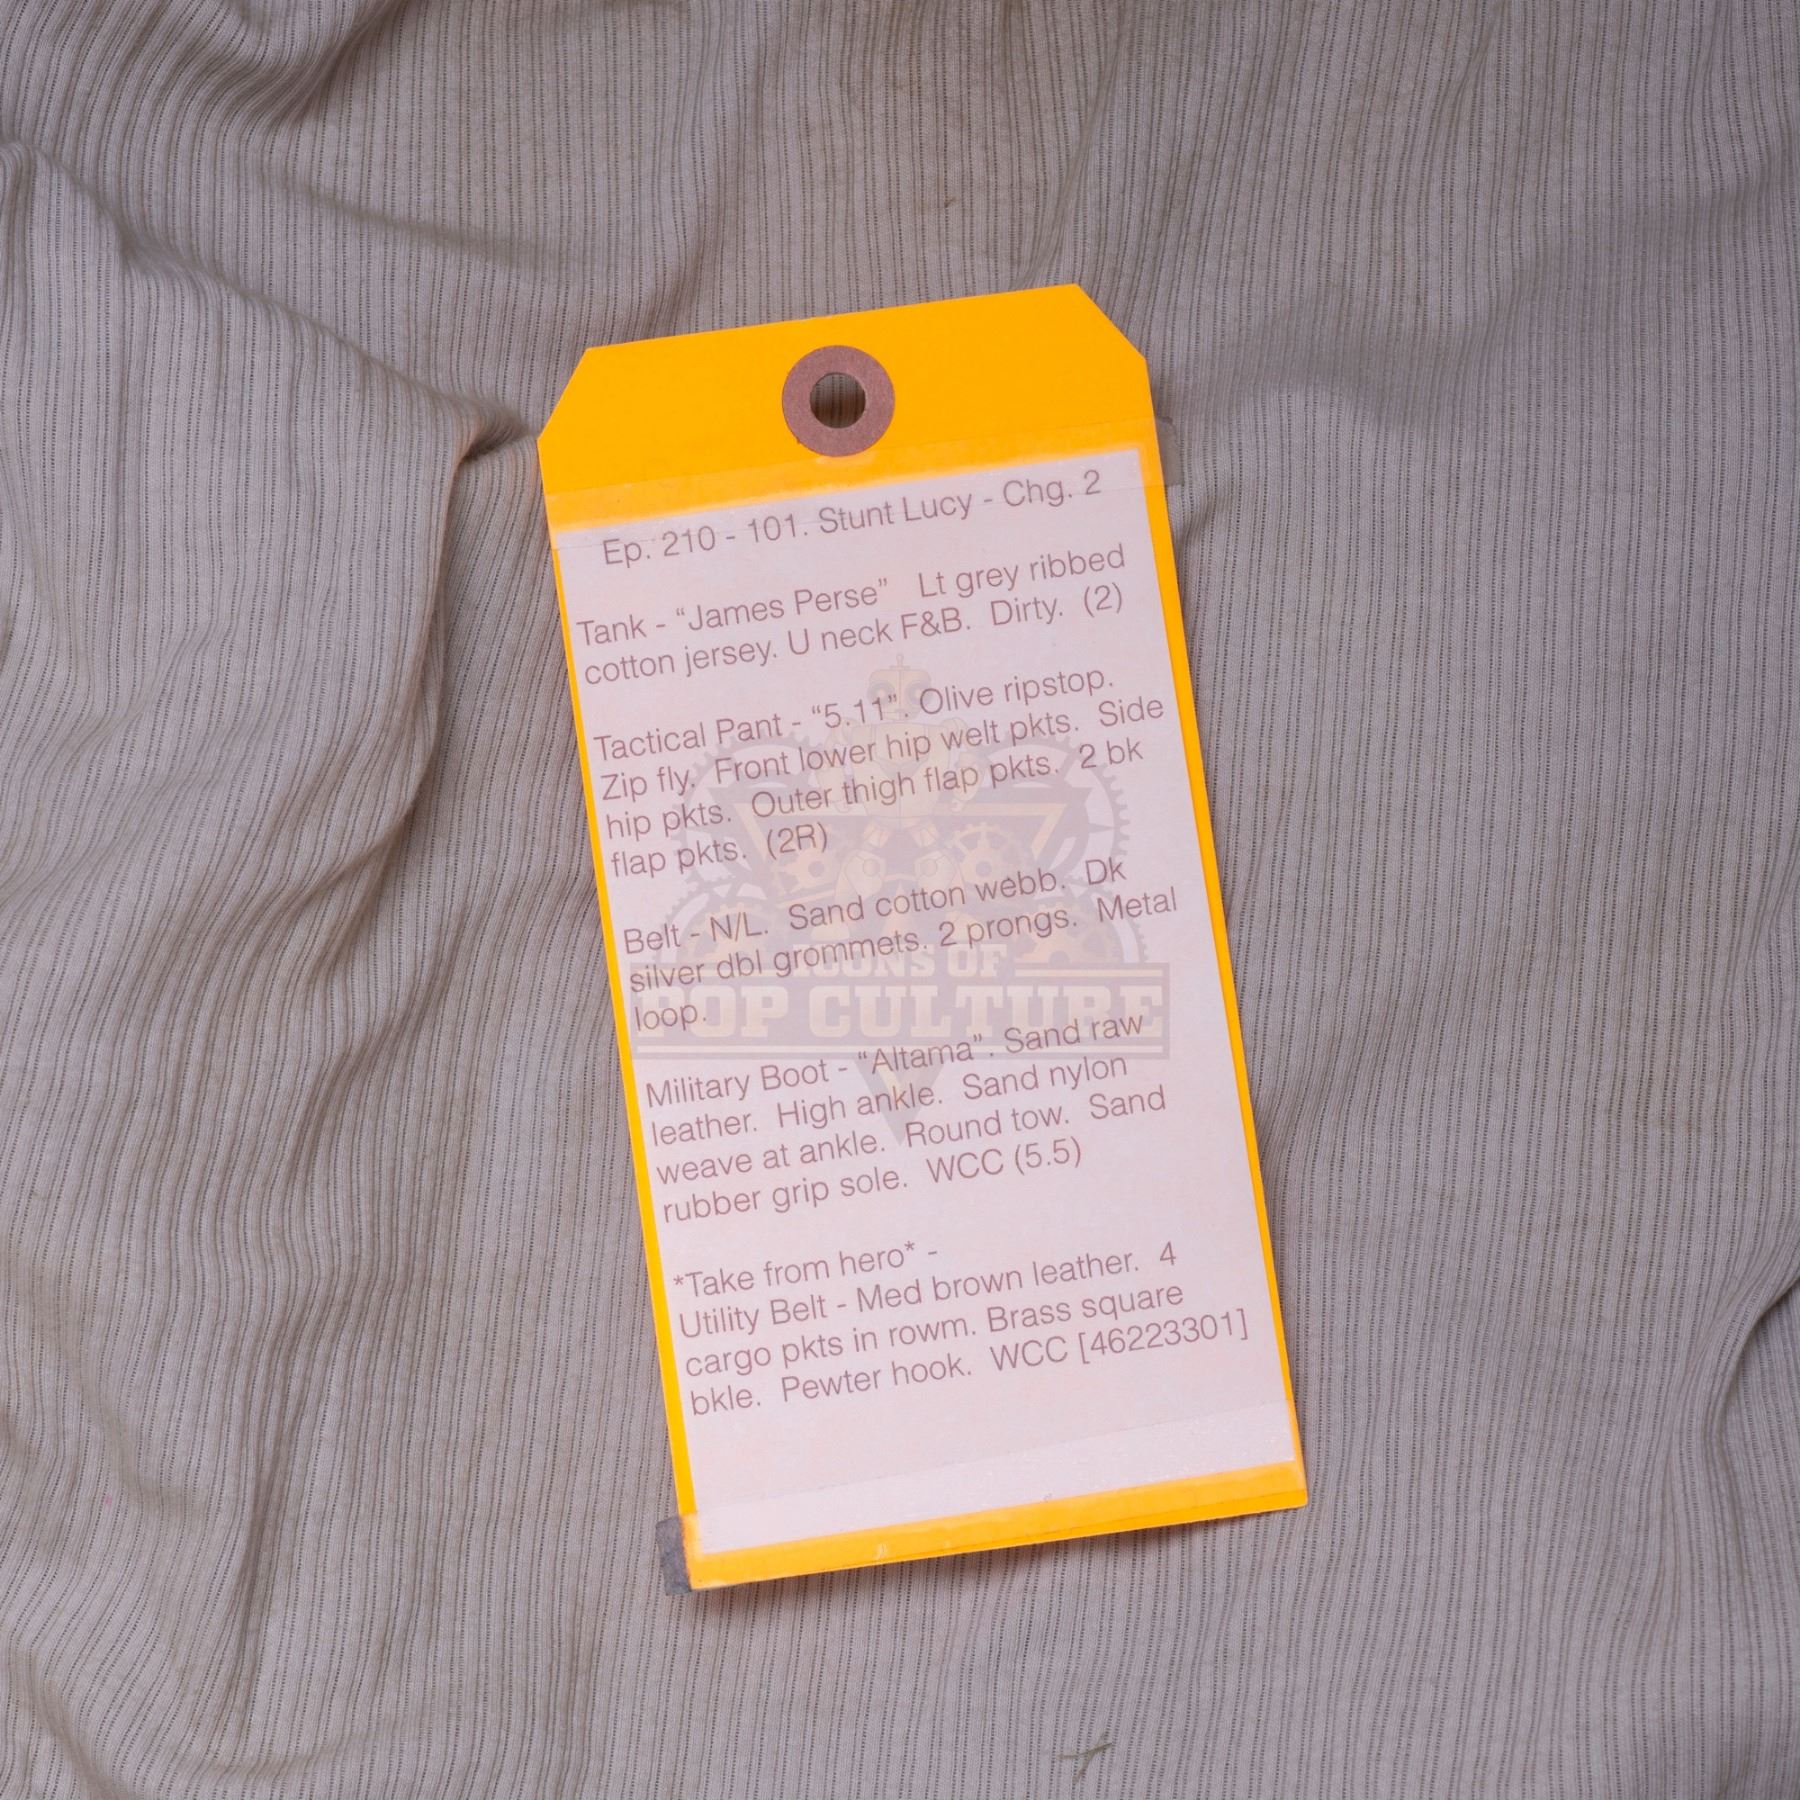 Ep. 210 - 101. Stunt Lucy - Chg. 2
Tank - “James Perse”   Lt grey ribbed
cotton jersey. U neck F&B.  Dirty.  (2)
Tactical Pant - “5.11”. Olive ripstop.
Zip fly.  Front lower hip welt pkts.  Side
hip pkts.  Outer thigh flap pkts.  2 bk
flap pkts.  (2R)
Belt - N/L.  Sand cotton webb.  Dk
silver dbl grommets. 2 prongs.  Metal
loop.
Military Boot - “Altama”. Sand raw
leather.  High ankle.  Sand nylon
weave at ankle.  Round tow.  Sand
rubber grip sole.  WCC (5.5)
*Take from hero* -
Utility Belt - Med brown leather.  4
cargo pkts in rowm. Brass square
bkle.  Pewter hook.  WCC [46223301]
ICONS OF
POP CULTURE